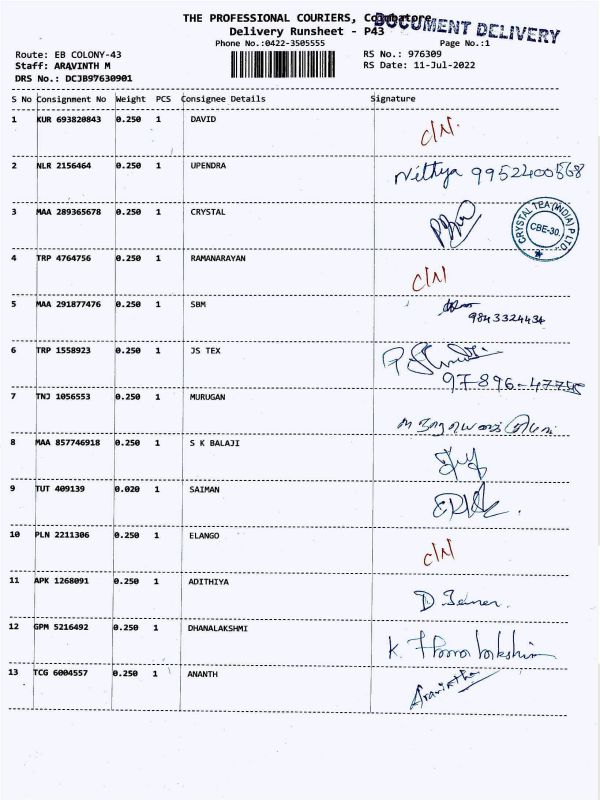 THE PROFESSIONAL COURIERS, Coimbatore
DOCUMENT DELIVERY
Delivery Runsheet - P43
Phone No.:0422-3505555 Page No.:1
Route: EB COLONY-43 RS No.: 976309
Staff: ARAVINTH M RS Date: 11-Jul-2022
DRS No.: DCJB97630901
S No Consignment No Weight PCS Consignee Details Signature
1 KUR 693820843 0.250 1 DAVID C/N.
2 NLR 2156464 0.250 1 UPENDRA Nithya 9952400568
3 MAA 289365678 0.250 1 CRYSTAL
CRYSTAL TEA (INDIA) P LTD. CBE-30.
4 TRP 4764756 0.250 1 RAMANARAYAN C/N
5 MAA 291877476 0.250 1 SBM
9843324434
6 TRP 1558923 0.250 1 JS TEX
97896-47755
7 TNJ 1056553 0.250 1 MURUGAN
8 MAA 857746918 0.250 1 S K BALAJI
9 TUT 409139 0.020 1 SAIMAN
10 PLN 2211306 0.250 1 ELANGO C/N
11 APK 1268091 0.250 1 ADITHIYA D
12 GPM 5216492 0.250 1 DHANALAKSHMI K.
13 TCG 6004557 0.250 1 ANANTH